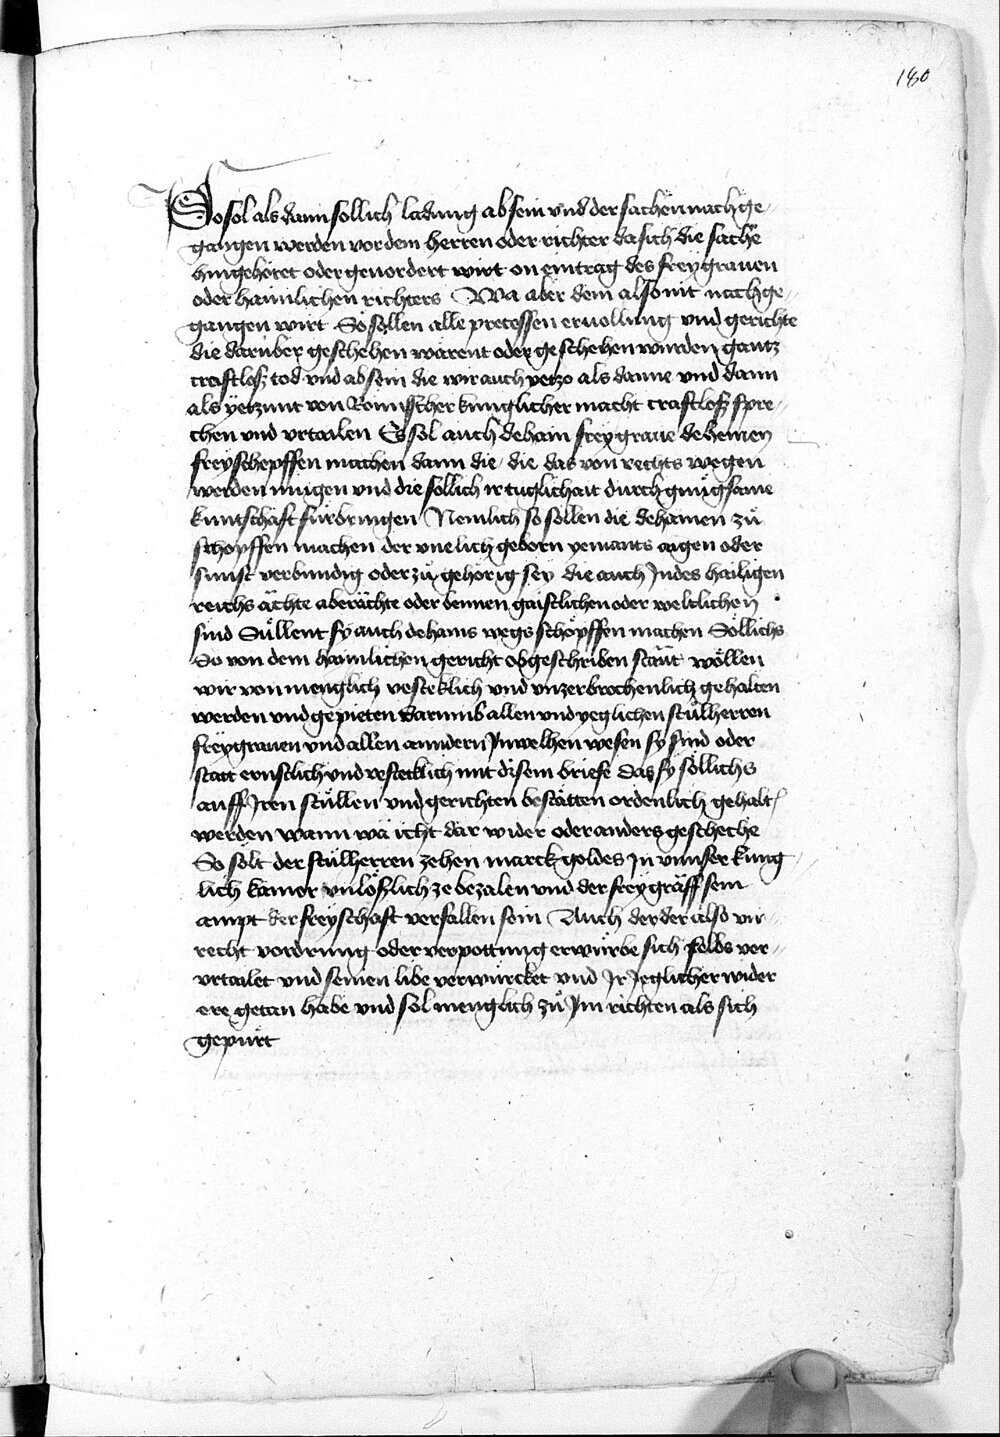 180
So sol als dann sollich ladung ab sein vnd der sachen nach ge-
gangen werden vor dem herren oder richter da sich die sache
hingehöret oder geuordert wirt on eintrag des freygrauen
oder haimlichen richters Wa aber dem also nit nachge-
gangen wirt So söllen alle processen eruollung vnd gerichte
die darüber geschehen wärent oder geschehen wurden gantz
craftloß tod vnd ab sein die wir auch yetzo als danne vnd dann
als yetzunt von Römischer kunglicher macht craftloß spre-
chen vnd vrtailen Es sol auch dehain freygraue deheinen
freyschepffen machen dann die die das von rechts wegen
werden mugen vnd die sollich ir tuglichait durch gnugsame
kuntschaft furbringen Nemlich so sollen die dehainen zů
schöpffen machen der vnelich geborn yemants aigen oder
sunst verbundig oder zů gehörig sey die auch Jn des hailigen
reichs ächte aberächte oder bennen gaistlichen oder weltlichen
sind Süllent sy auch dehains wegs schöpffen machen Söllichs
So von dem haimlichen gericht obgeschriben staut wöllen
wir von menglich vesteklich vnd vnzerbrochenlich gehalten
werden vnd gepieten darumb allen vnd yeglichen stůlherren
freygrauen vnd allen anndern Jn welhen wesen sy sind oder
statt ernstlich vnd vestecklich mit disem briefe das sy söllichs
auff Jren stůllen vnd gerichten bestätten ordenlich gehalt
werden wann wa icht dar wider oder anders gescheche
So sölt der stůlherren zehen marck goldes Jn vnnser kung
lich kamer vnlößlich ze bezalen vnd der freygräff sein
ampt der freyschaft verfallen sein Auch der der also vn-
recht vordrung oder verpottung erwürbe sich selbs ver-
vrtailet vnd seinen libe verwürcket vnd Jr Jeglicher wider
ere getan habe vnd sol menglich zů Jm richten als sich
gepürt